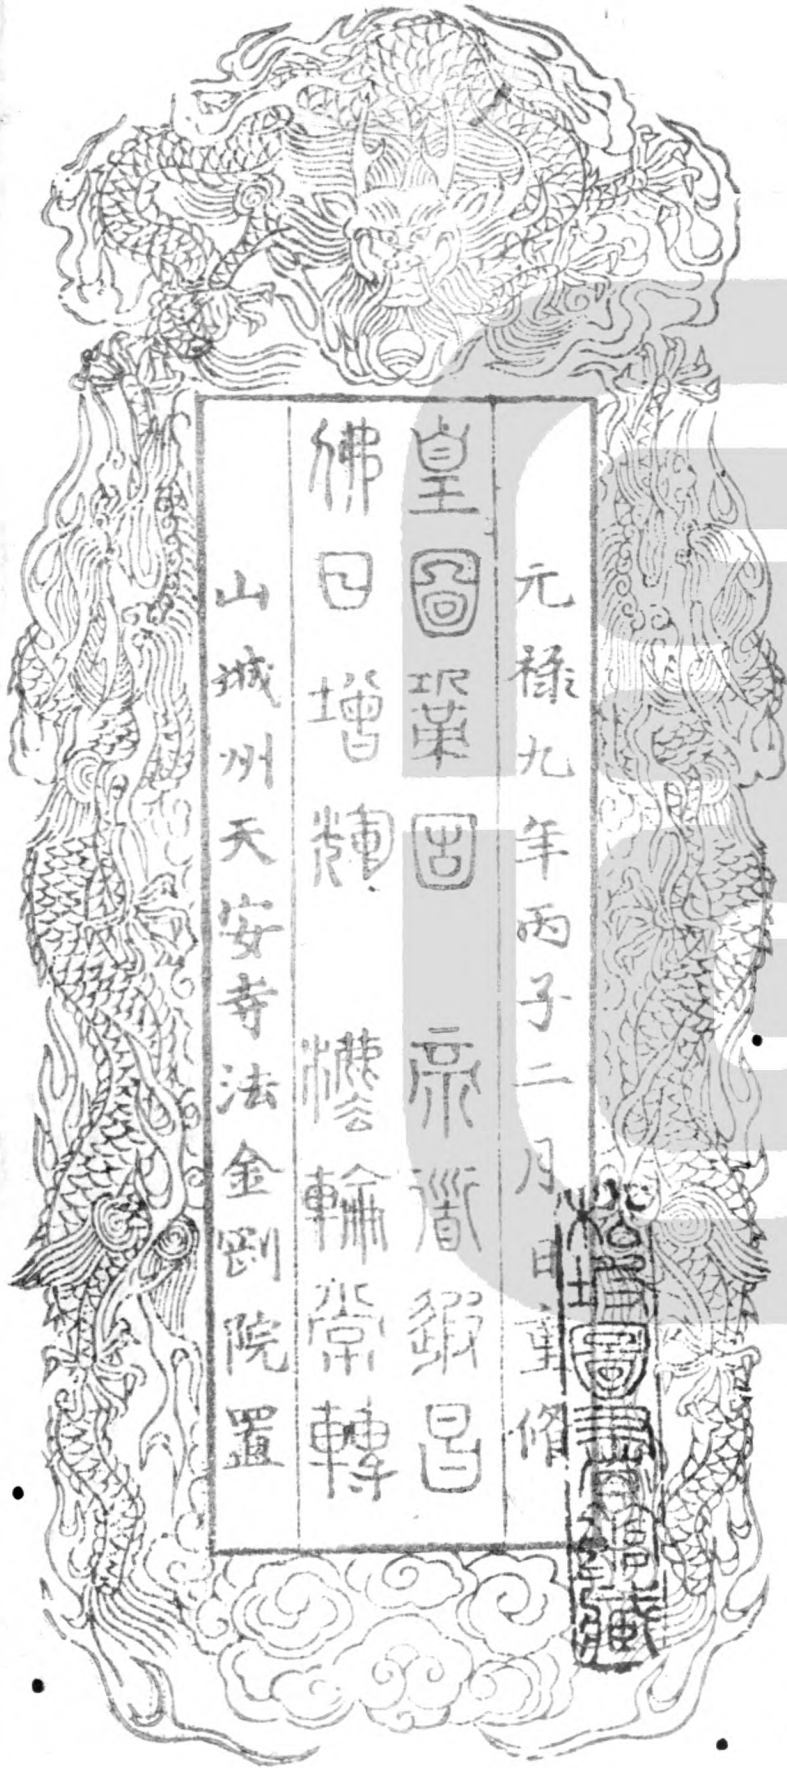 元禄九年丙子二月日重脩
皇圖鞏固 帝道遐昌
佛日增輝 法輪常轉
山城州天安寺法金剛院置